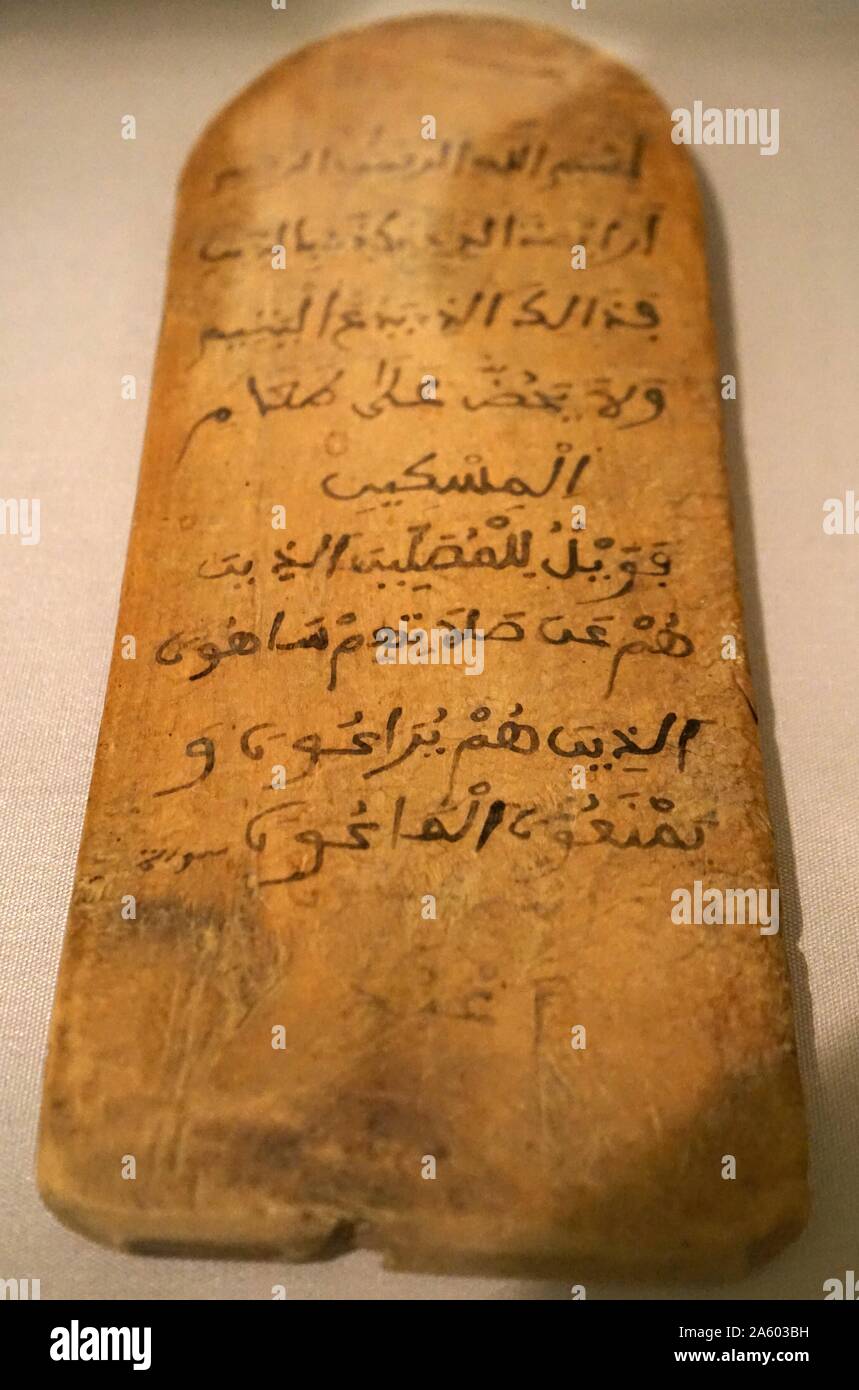 بسم الله الرحمن الرحيم
أرايت الذي يكذب بالدين
فذالك الذي يدع اليتيم
وَلاَ يَحُضُّ عَلَىٰ طعام
الْمِسْكِين
فَوَيْلٌ لِلْمُصَلِّين الذِين
هُمْ عَن صَلاَتِهِمْ سَاهُون
الذِين هُمْ يُرَاءُون وَ
يَمْنَعُون الْمَاعُون
alamy
alamy
alamy
alamy
Image ID: 2A603BH
www.alamy.com